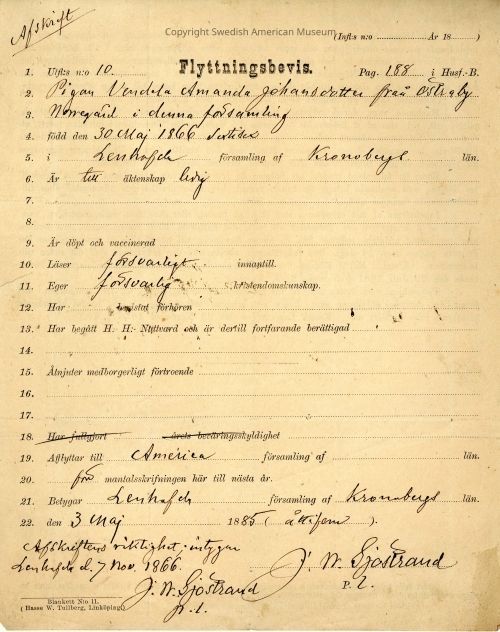 Afskrift
Copyright Swedish American Museum
(Infl:s n:o År 18 )
1. Utfl:s n:o 10. Flyttningsbevis. Pag. 188 i Husf.-B.
2. Pigan Vendela Amanda Johansdotter från Östraby
3. Norregård i denna församling
4. född den 30 Maj 1866
5. i Lenhofda församling af Kronobergs län.
6. Är till äktenskap ledig
7.
8.
9. Är döpt och vaccinerad
10. Läser försvarligt innantill.
11. Eger försvarlig kristendomskunskap.
12. Har bevistat förhören
13. Har begått H. H. Nattvard och är dertill fortfarande berättigad
14.
15. Åtnjuter medborgerligt förtroende
16.
17.
18. Har fullgjort årets beväringsskyldighet
19. Afflyttar till America församling af län.
20. före mantalsskrifningen här till nästa år.
21. Betygar Lenhofda församling af Kronobergs län.
22. den 3 Maj 1885 (åttifem).
Afskriftens riktighet intygar
Lenhofda d. 7 Nov. 1866. J. W. Sjöstrand
J. W. Sjöstrand P. L.
p. l.
Blankett N:o 11.
(Hasse W. Tullberg, Linköping)